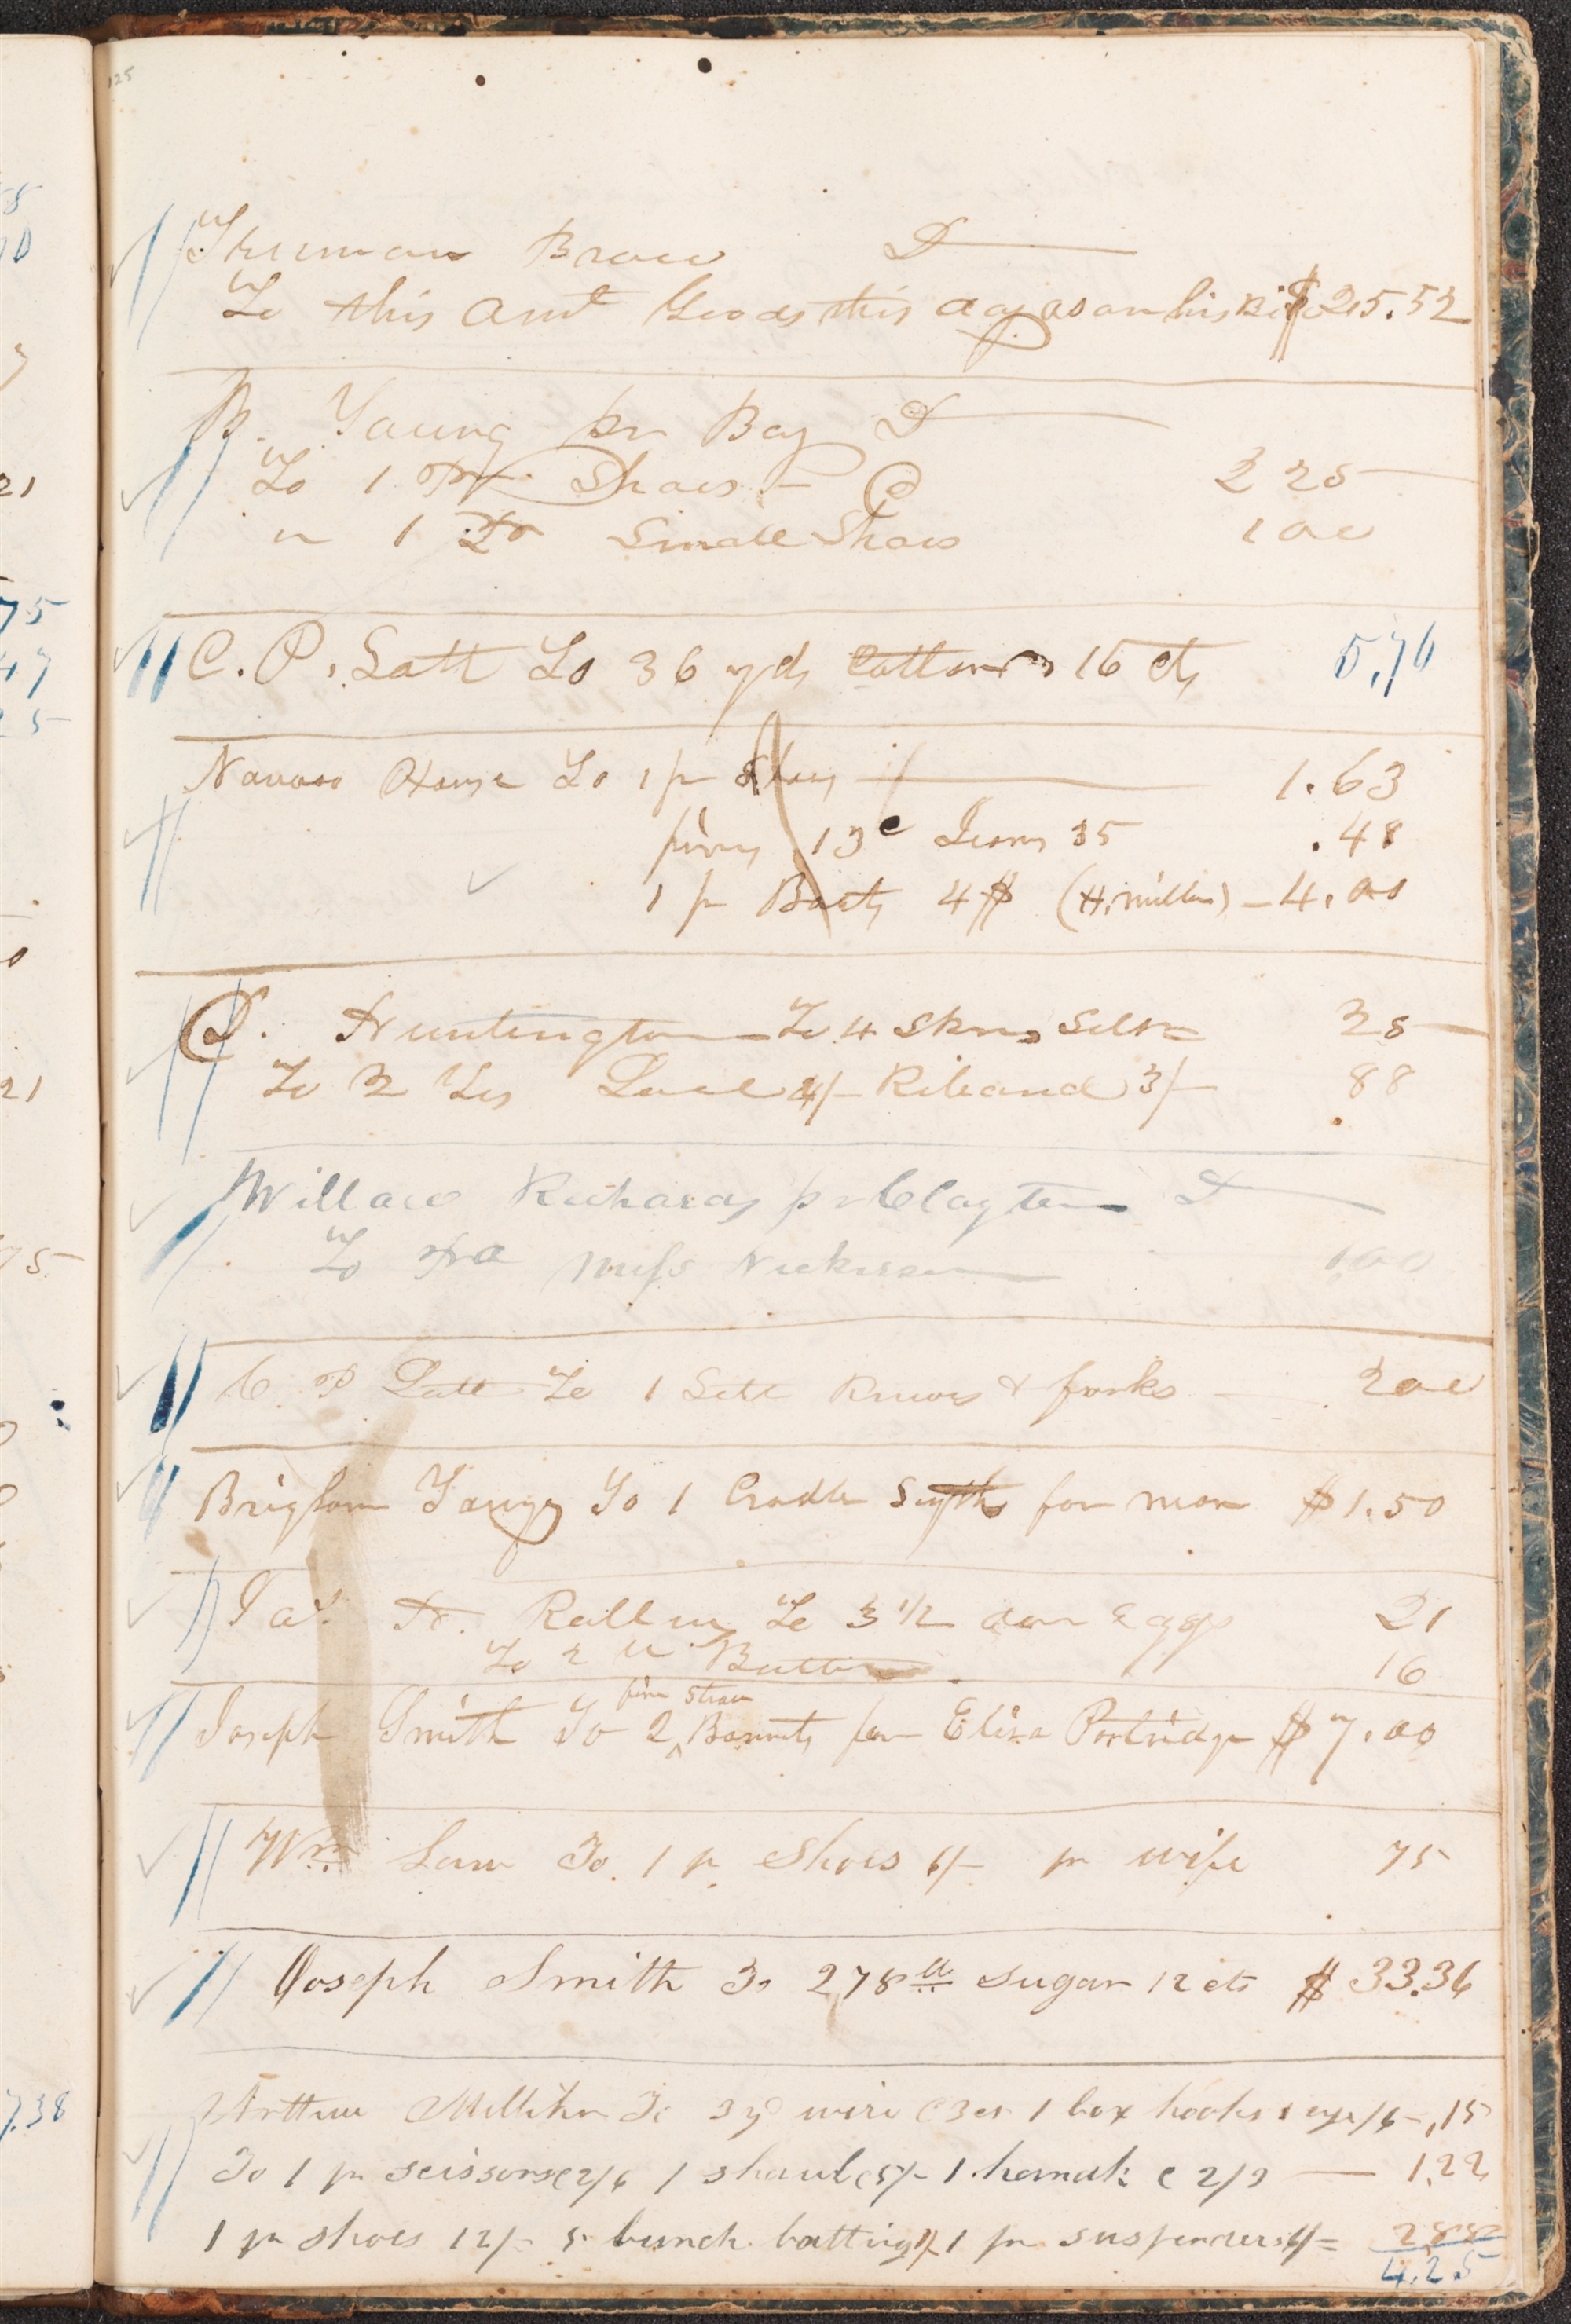 125
Truman Brace D
To this Amt Goods this day as on his Bill $25.52
B. Young pr Boy D
To 1 Pr Shoes @ 2 25
" 1 Pr Small Shoes 1 00
C. P. Lott To 36 yds Cotton 16 cts 5,76
Nauvoo House To 1 pr Shoes 1.63
pins 13c Jeans 35 .48
1 pr Boots 4$ (H. Miller) - 4.00
D. Huntington To 4 Skns Silk 25
To 2 Yds Lace 4/- Riband 3/- 88
Willard Richards pr Clayton D
To Pd Miss Nickerson 1,00
C P Lott To 1 Sett Knives & forks 2 00
Brigham Young To 1 Cradle Scythe for man $1.50
To 3 1/2 doz Eggs 21
To 2 lb Butter 16
Joseph Smith To 2 fine straw Bonnets for Eliza Partridge $7.00
Wm Law To 1 pr Shoes 6/- pr wife 75
Joseph Smith To 278 lb sugar 12 cts $33.36
Arthur Milliken To 3 yd wire @3 cts 1 box hooks & eyes /6 - ,15
To 1 pr scissors @2/6 1 shawl @5/- 1 handk: @ 2/3 1,22
1 pr shoes 12/- 5 bunch batting 1 pr suspenders 4/= 2,88
4.25
21
75
47
25
21
75
7.38